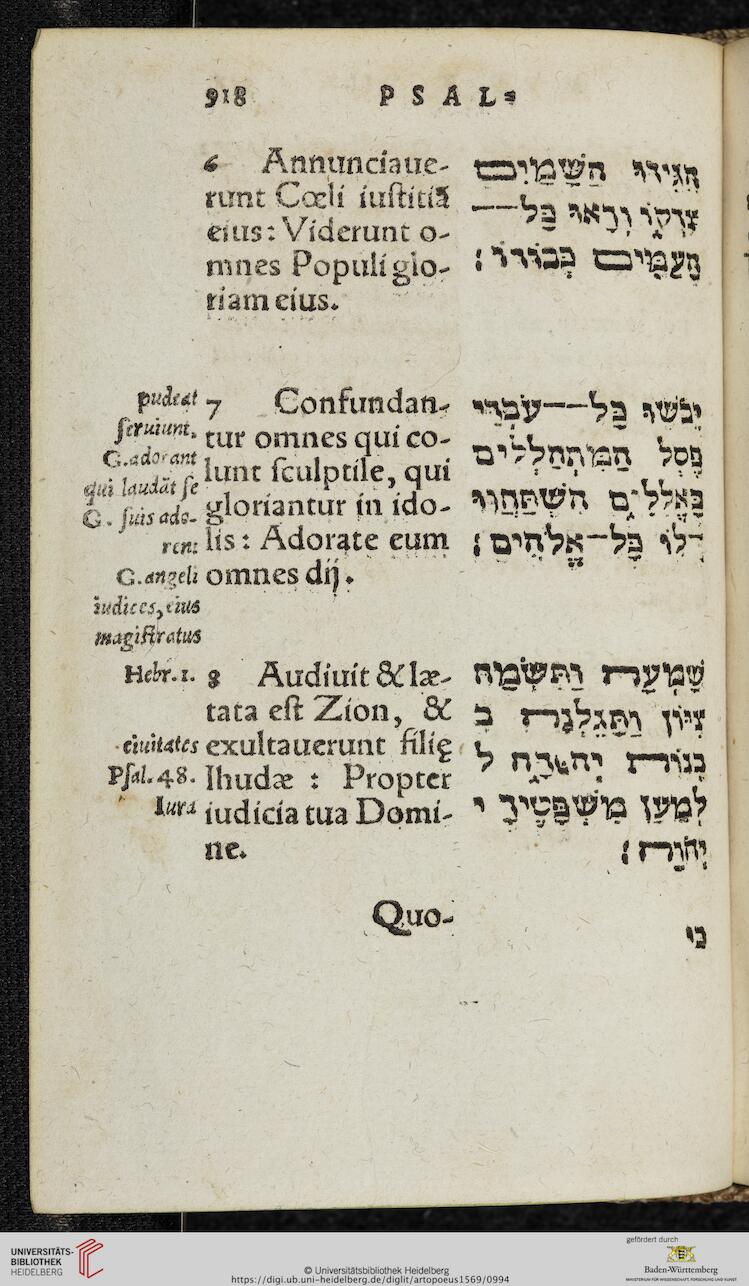 918
PSAL=
6 Annunciaue-
runt Cœli iuſtitiā
eius: Viderunt o-
mnes Populi glo-
riam eius.
הִגִּידוּ הַשָּׁמַיִם
צִדְקוֹ וְרָאוּ כָּל——
הָעַמִּים כְּבוֹדוֹ׃
pudeat
ſeruiunt,
G.adorant
qui laudāt ſe
G. ſuis ado-
rent
G.angeli
iudices, eius
magiſtratus
7 Confundan-
tur omnes qui co-
lunt ſculptile, qui
gloriantur in ido-
lis: Adorate eum
omnes dij.
יֵבֹשׁוּ כָּל——עֹבְדֵי
פֶסֶל הַמִּתְהַלְלִים
בָּאֱלִילִים הִשְׁתַּחֲווּ
לוֹ כָּל—אֱלֹהִים׃
Hebr.1.
ciuitates
Pſal.48.
Iura
8 Audiuit & læ-
tata eſt Zion, &
exultauerunt filię
Ihudæ : Propter
iudicia tua Domi-
ne.
שָׁמְעָה וַתִּשְׂמַח
צִיּוֹן וַתָּגֵלְנָה ב
בְּנוֹת יְהוּדָה ל
לְמַעַן מִשְׁפָּטֶיךָ י
יְהֹוָה׃
Quo-
כי
UNIVERSITÄTS-
BIBLIOTHEK
HEIDELBERG
© Universitätsbibliothek Heidelberg
https://digi.ub.uni-heidelberg.de/diglit/artopoeus1569/0994
gefördert durch
Baden-Württemberg
MINISTERIUM FÜR WISSENSCHAFT, FORSCHUNG UND KUNST